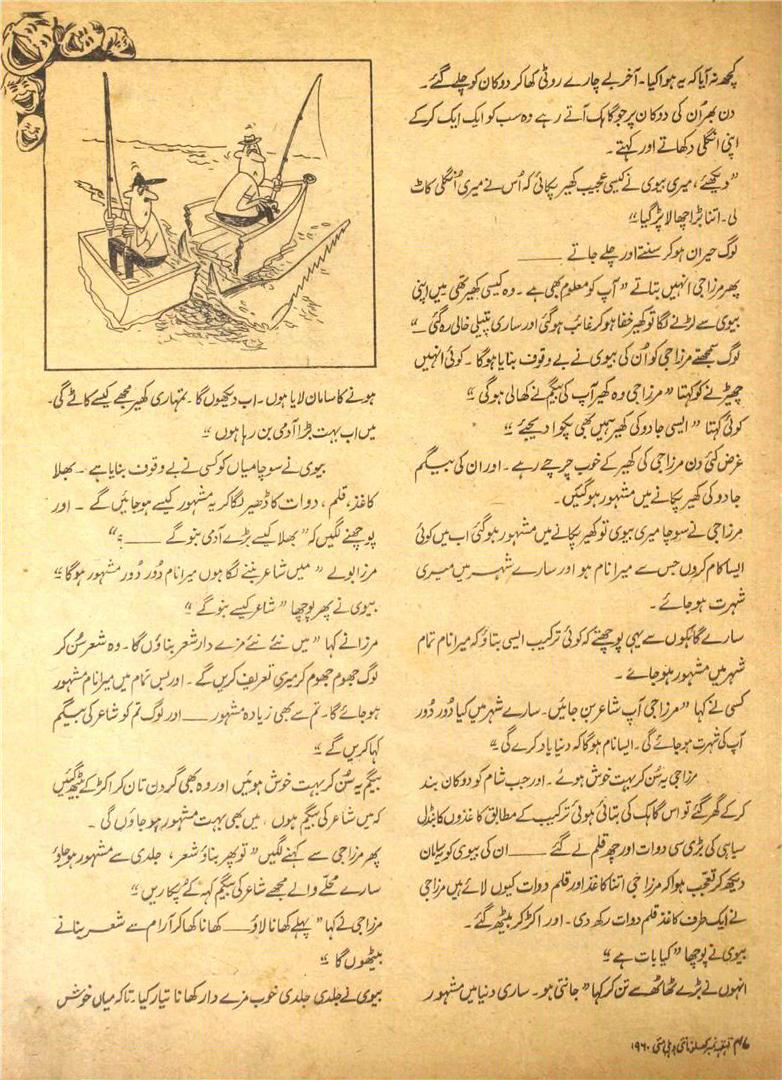 کچھ نہ آیا کہ یہ ہوا کیا۔ آخر بے چارے روٹی کھا کر دوکان کو چلے گئے۔
دن بھر اُن کی دوکان پر جو گاہک آتے رہے وہ سب کو ایک ایک کرکے
اپنی انگلی دکھاتے اور کہتے۔
”دیکھئے، میری بیوی نے کیسی عجیب کھیر پکائی کہ اُس نے میری اُنگلی کاٹ
لی۔ اتنا بڑا چھالا پڑ گیا“
لوگ حیران ہوکر سنتے اور چلے جاتے ———
پھر مرزا جی انہیں بتاتے ”آپ کو معلوم بھی ہے۔ وہ کیسی کھیر تھی میں اپنی
بیوی سے لڑنے لگا تو کھیر خفا ہوکر غائب ہوگئی اور ساری پتیلی خالی رہ گئی۔“
لوگ سمجھتے مرزا جی کو اُن کی بیوی نے بے وقوف بنایا ہوگا۔ کوئی انہیں
چھیڑنے کو کہتا ”مرزا جی وہ کھیر آپ کی بیگم نے کھالی ہوگی“
کوئی کہتا ”ایسی جادو کی کھیر ہمیں بھی پکوا دیجئے“
غرض کئی دن مرزا جی کی کھیر کے خوب چرچے رہے۔ اور ان کی بیگم
جادو کی کھیر پکانے میں مشہور ہوگئیں۔
مرزا جی نے سوچا میری بیوی تو کھیر پکانے میں مشہور ہوگئی اب میں کوئی
ایسا کام کروں جس سے میرا نام ہو اور سارے شہر میں میری
شہرت ہو جائے۔
سارے گاہکوں سے یہی پوچھتے کہ کوئی ترکیب ایسی بتاؤ کہ میرا نام تمام
شہر میں مشہور ہو جائے۔
کسی نے کہا ”مرزا جی آپ شاعر بن جائیں۔ سارے شہر میں کیا دُور دُور
آپ کی شہرت ہو جائے گی۔ ایسا نام ہوگا کہ دنیا یاد کرے گی“
مرزا جی یہ سُن کر بہت خوش ہوئے۔ اور جب شام کو دوکان بند
کرکے گھر گئے تو اس گاہک کی بتائی ہوئی ترکیب کے مطابق کاغذوں کا بنڈل
سیاہی کی بڑی سی دوات اور چھ قلم لے گئے ——— ان کی بیوی کو یہ سامان
دیکھ کر تعجب ہوا کہ مرزا جی اتنا کاغذ اور قلم دوات کیوں لائے ہیں مرزا جی
نے ایک طرف کاغذ قلم دوات رکھ دی۔ اور اکڑ کر بیٹھ گئے۔
بیوی نے پوچھا ”کیا بات ہے“
انہوں نے بڑے ٹھاٹھ سے تن کر کہا ”جانتی ہو۔ ساری دنیا میں مشہور
ہونے کا سامان لایا ہوں۔ اب دیکھوں گا۔ تمہاری کھیر مجھے کیسے کاٹے گی۔
میں اب بہت بڑا آدمی بن رہا ہوں“
بیوی نے سوچا میاں کو کسی نے بے وقوف بنایا ہے۔ بھلا
کاغذ، قلم، دوات کا ڈھیر لگا کر یہ مشہور کیسے ہو جائیں گے۔ اور
پوچھنے لگیں کہ ”بھلا کیسے بڑے آدمی بنو گے ———؟“
مرزا بولے ”میں شاعر بننے لگا ہوں میرا نام دُور دُور مشہور ہوگا“
بیوی نے پھر پوچھا ”شاعر کیسے بنو گے“
مرزا نے کہا ”میں نئے نئے مزے دار شعر بناؤں گا۔ وہ شعر سُن کر
لوگ جھوم جھوم کر میری تعریف کریں گے۔ اور بس تمام میں میرا نام مشہور
ہو جائے گا۔ تم سے بھی زیادہ مشہور ——— اور لوگ تم کو شاعر کی بیگم
کہا کریں گے“
بیگم یہ سُن کر بہت خوش ہوئیں اور وہ بھی گردن تان کر اکڑ کے بیٹھ گئیں
کہ میں شاعر کی بیگم ہوں، میں بھی بہت مشہور ہو جاؤں گی۔
پھر مرزا جی سے کہنے لگیں ”تو پھر بناؤ شعر، جلدی سے مشہور ہو جاؤ
سارے محلے والے مجھے شاعر کی بیگم کہہ کے پکاریں“
مرزا جی نے کہا ”پہلے کھانا لاؤ ——— کھانا کھا کر آرام سے شعر بنانے
بیٹھوں گا“
بیوی نے جلدی جلدی خوب مزے دار کھانا تیار کیا۔ تاکہ میاں خوش
کھلونا نئی دہلی مئی ۱۹۶۰